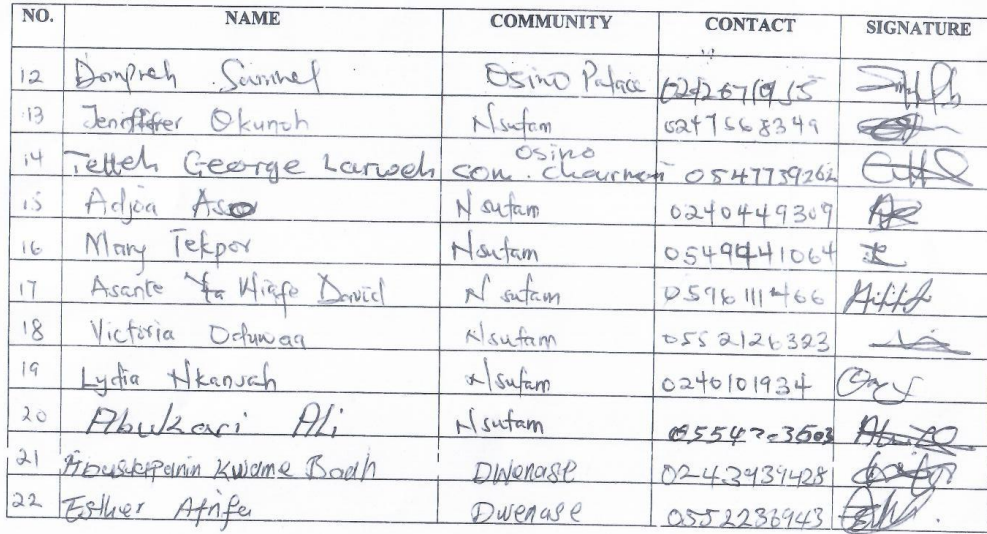 NO. NAME COMMUNITY CONTACT SIGNATURE
12 Dompreh Samuel Osino Palace
13 Jeniffer Okunoh Nsutam 0247568349
14 Tetteh George Larweh Osino com. chairman 0547739262
15 Adjoa Nsutam 0240449309
16 Mary Tekpor Nsutam 0549441064
17 Asante David Nsutam
18 Victoria Oduwaa Nsutam 0552126323
19 Lydia Nkansah Nsutam 0246101934
20 Abukari Ali Nsutam
21 Abusuapanin Kwame Boah Dwenase 0243939428
22 Esther Afrifa Dwenase 0552236943